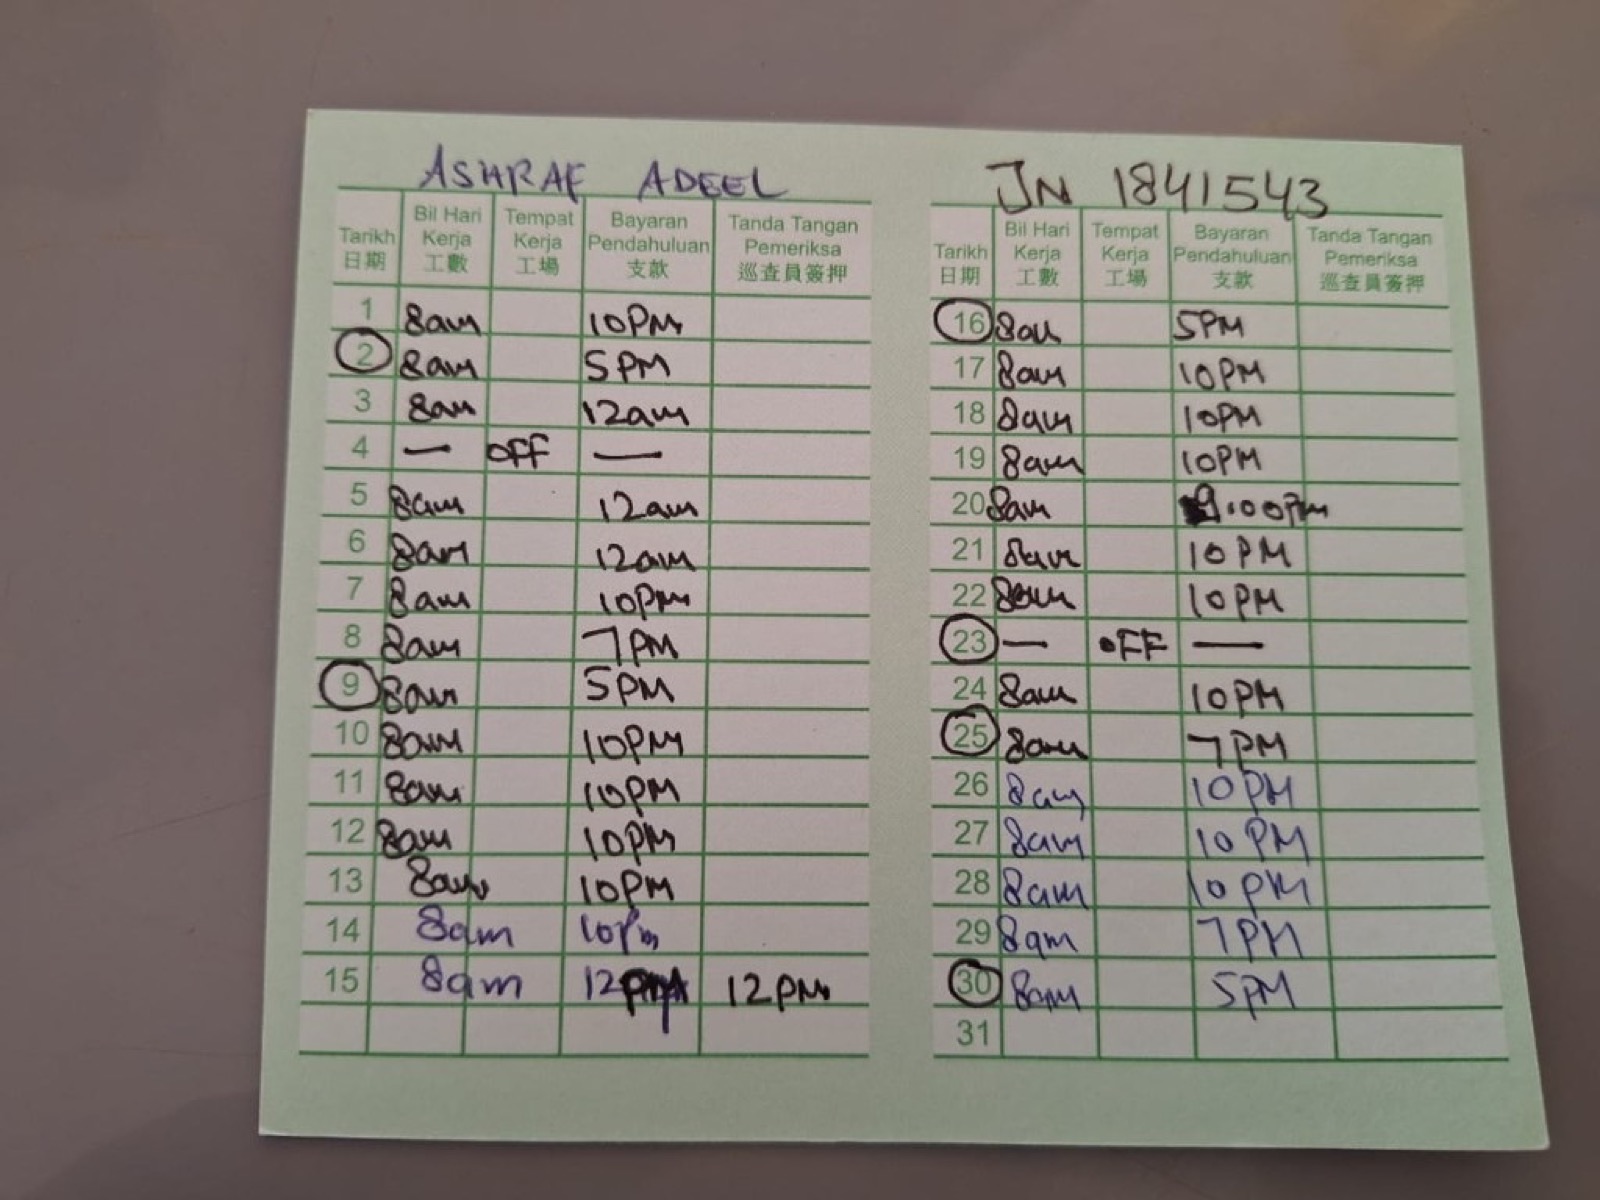 ASHRAF ADEEL
Tarikh 日期 Bil Hari Kerja 工數 Tempat Kerja 工場 Bayaran Pendahuluan 支款 Tanda Tangan Pemeriksa 巡查員簽押
1 8am 10PM
2 8am 5PM
3 8am 12am
4 — OFF —
5 8am 12am
6 8am 12am
7 8am 10PM
8 8am 7PM
9 8am 5PM
10 8am 10PM
11 8am 10PM
12 8am 10PM
13 8am 10PM
14 8am 10Pm
15 8am 12PM 12PM
JN 1841543
Tarikh 日期 Bil Hari Kerja 工數 Tempat Kerja 工場 Bayaran Pendahuluan 支款 Tanda Tangan Pemeriksa 巡查員簽押
16 8am 5PM
17 8am 10PM
18 8am 10PM
19 8am 10PM
20 8am 9:00Pm
21 8am 10PM
22 8am 10PM
23 — OFF —
24 8am 10PM
25 8am 7PM
26 8am 10PM
27 8am 10PM
28 8am 10PM
29 8am 7PM
30 8am 5PM
31